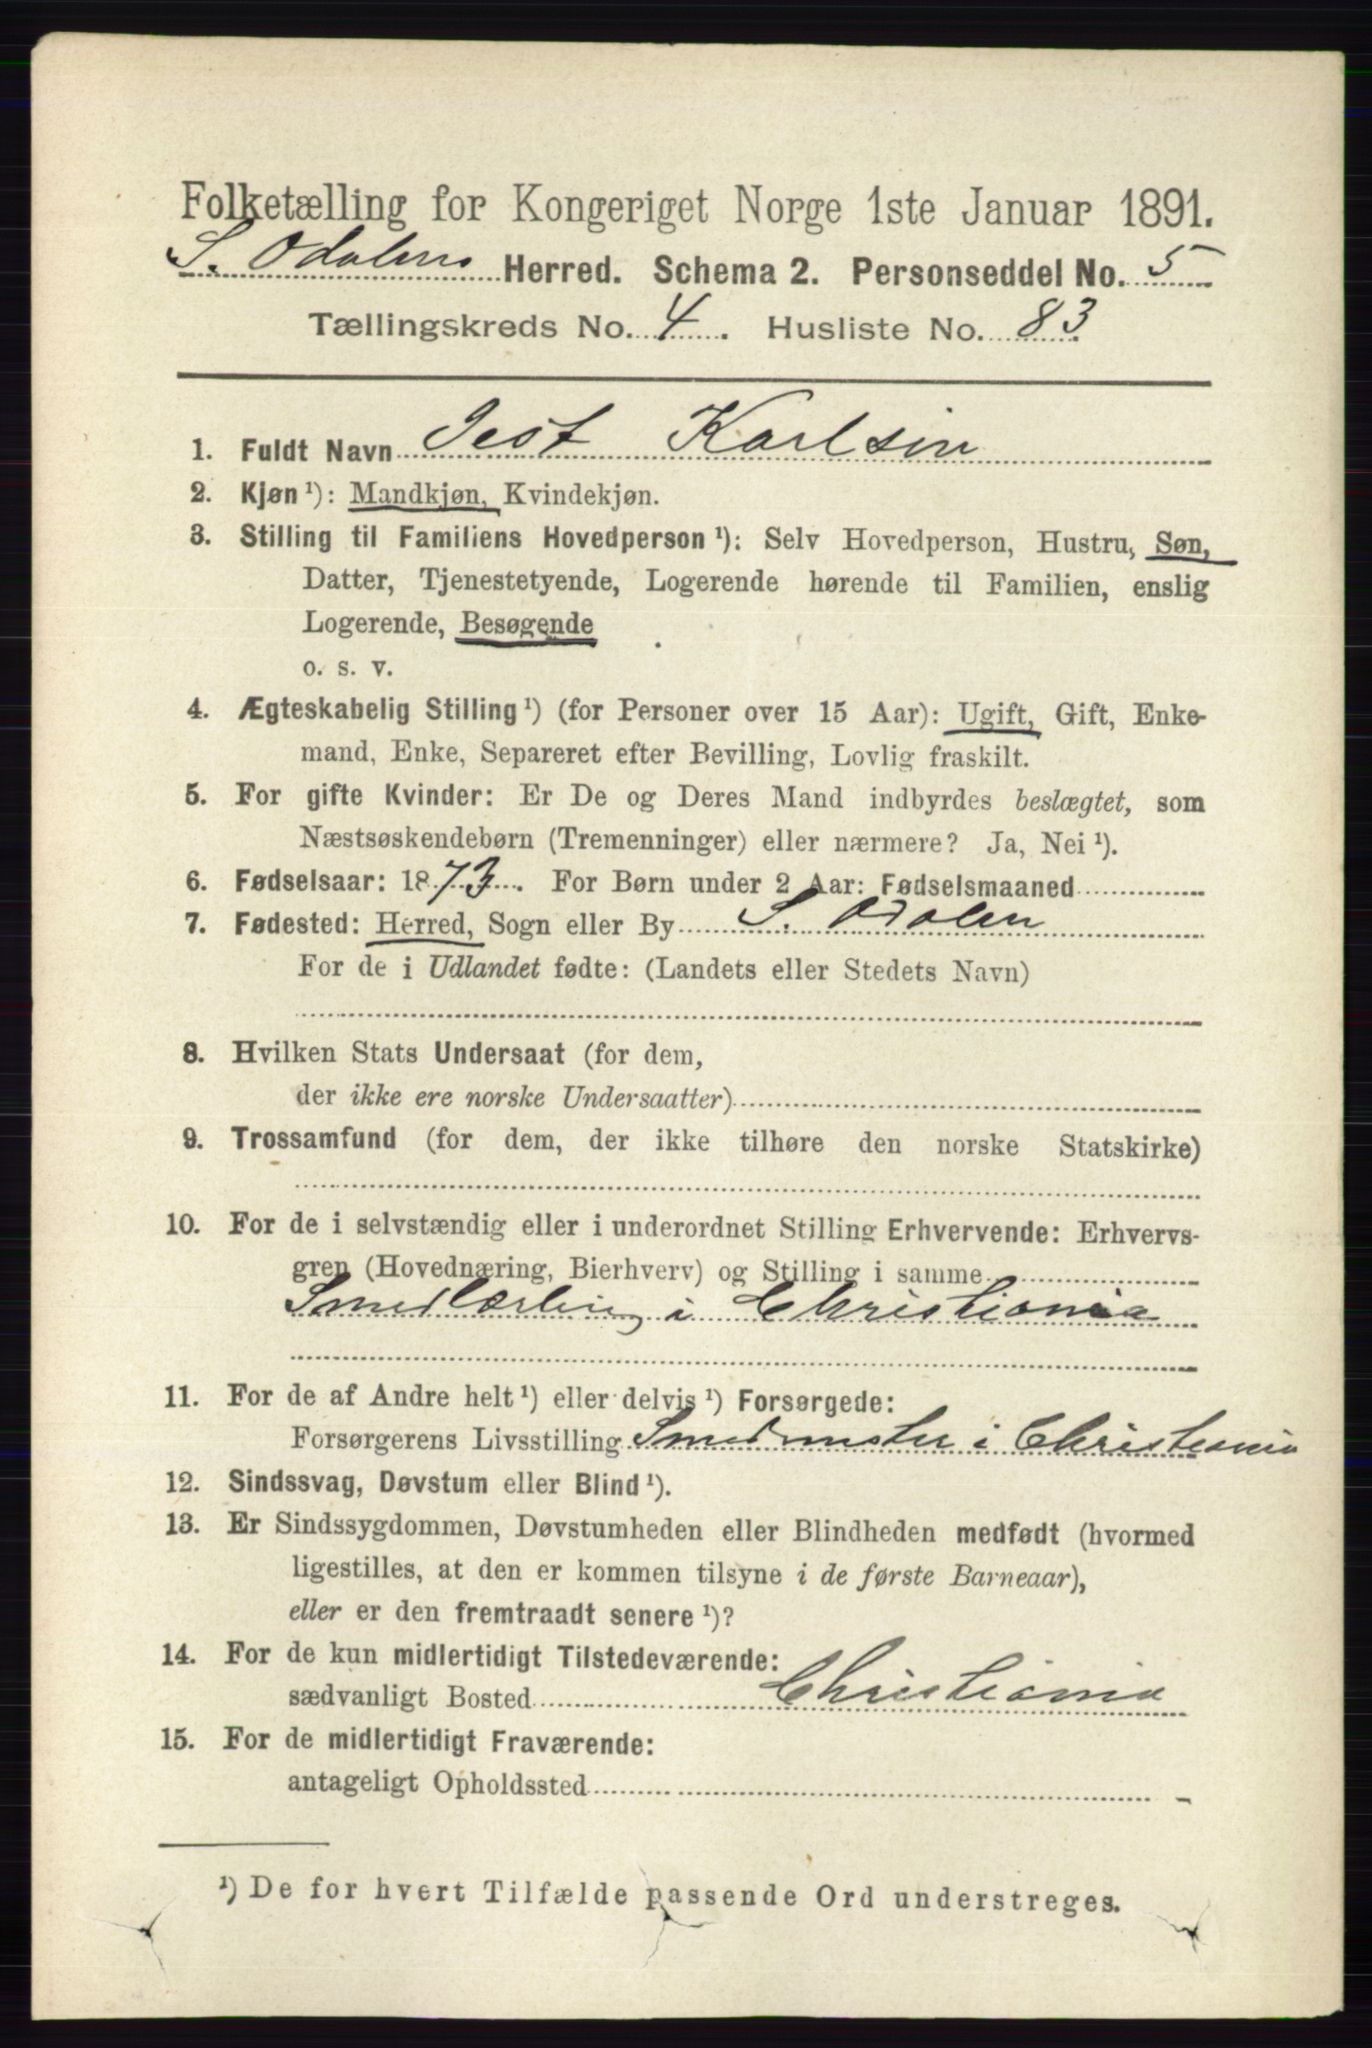 Folketælling for Kongeriget Norge 1ste Januar 1891.
S. Odalens Herred. Schema 2. Personseddel No. 5
Tællingskreds No. 4. Husliste No. 83
1. Fuldt Navn Karlsen
2. Kjøn ¹): Mandkjøn, Kvindekjøn.
3. Stilling til Familiens Hovedperson ¹): Selv Hovedperson, Hustru, Søn,
Datter, Tjenestetyende, Logerende hørende til Familien, enslig
Logerende, Besøgende
o. s. v.
4. Ægteskabelig Stilling ¹) (for Personer over 15 Aar): Ugift, Gift, Enke-
mand, Enke, Separeret efter Bevilling, Lovlig fraskilt.
5. For gifte Kvinder: Er De og Deres Mand indbyrdes beslægtet, som
Næstsøskendebørn (Tremenninger) eller nærmere? Ja, Nei ¹).
6. Fødselsaar: 1873. For Børn under 2 Aar: Fødselsmaaned
7. Fødested: Herred, Sogn eller By S. Odalen
For de i Udlandet fødte: (Landets eller Stedets Navn)
8. Hvilken Stats Undersaat (for dem,
der ikke ere norske Undersaatter)
9. Trossamfund (for dem, der ikke tilhøre den norske Statskirke)
10. For de i selvstændig eller i underordnet Stilling Erhvervende: Erhvervs-
gren (Hovednæring, Bierhverv) og Stilling i samme
Smedlærling i Christiania
11. For de af Andre helt ¹) eller delvis ¹) Forsørgede:
Forsørgerens Livsstilling Smedmester i Christiania
12. Sindssvag, Døvstum eller Blind ¹).
13. Er Sindssygdommen, Døvstumheden eller Blindheden medfødt (hvormed
ligestilles, at den er kommen tilsyne i de første Barneaar),
eller er den fremtraadt senere ¹)?
14. For de kun midlertidigt Tilstedeværende:
sædvanligt Bosted Christiania
15. For de midlertidigt Fraværende:
antageligt Opholdssted -
¹) De for hvert Tilfælde passende Ord understreges.